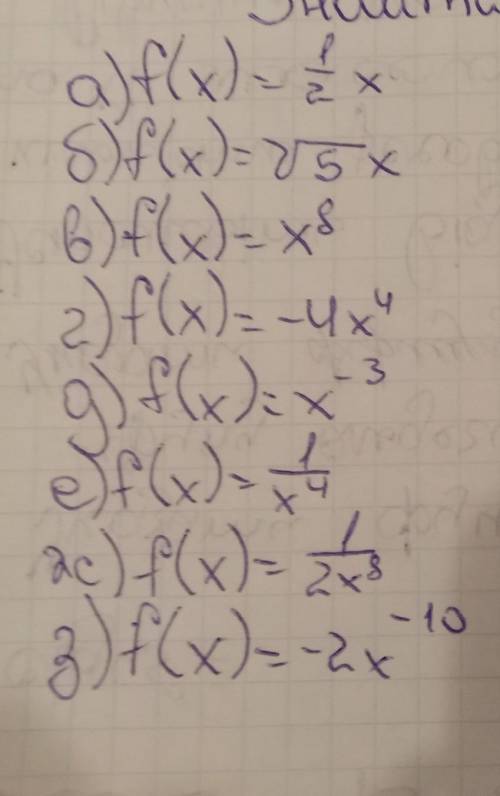 а) f(x) = 1/2 x
б) f(x) = √5 x
в) f(x) = x⁸
г) f(x) = -4x⁴
д) f(x) = x⁻³
е) f(x) = 1/x⁴
ж) f(x) = 1/2x⁸
з) f(x) = -2x⁻¹⁰